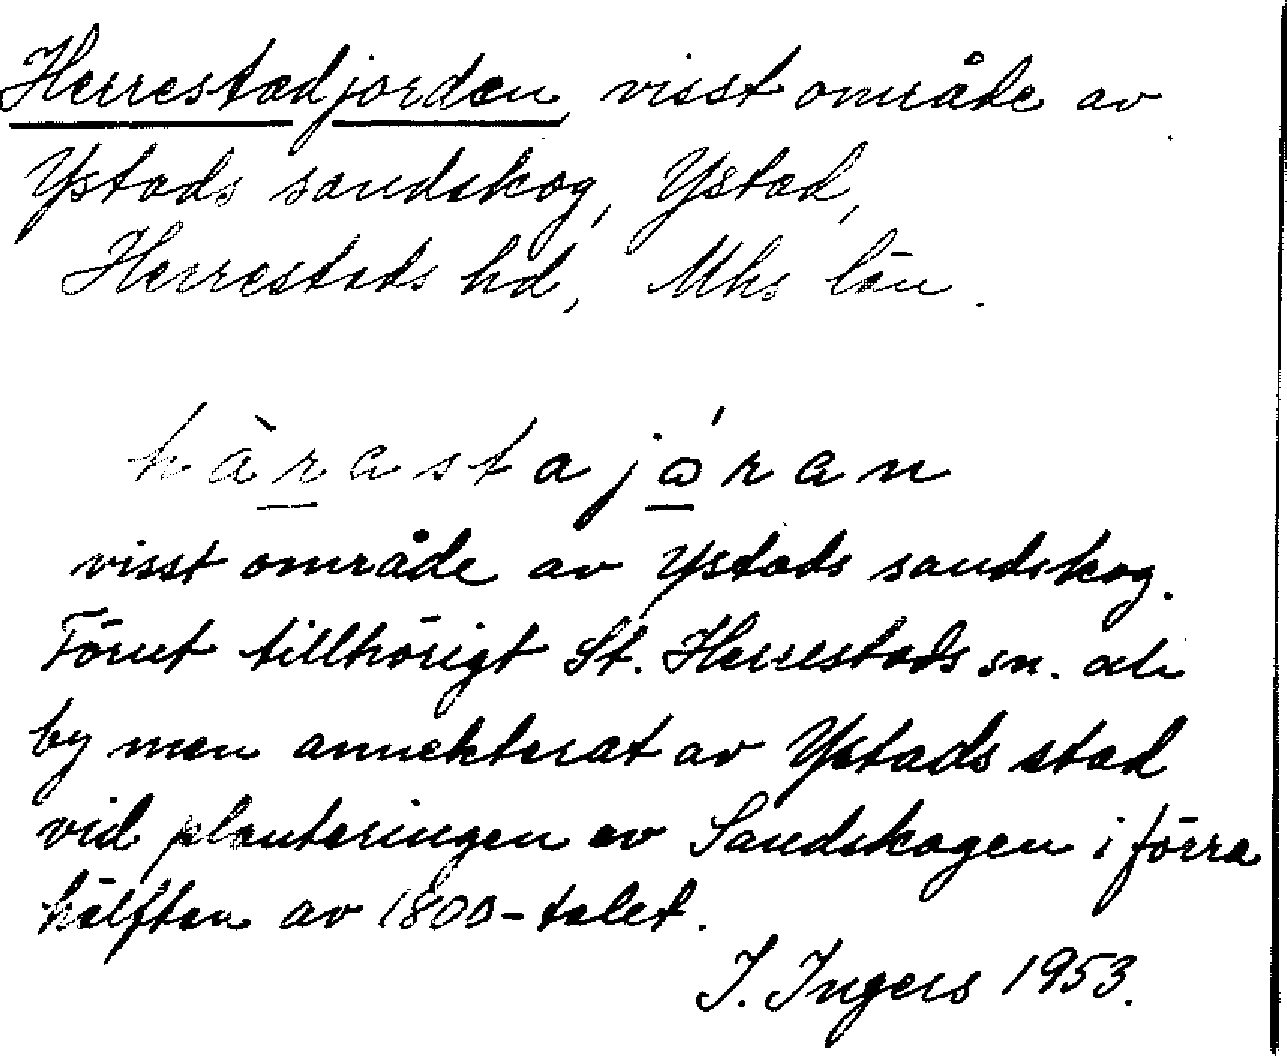 Herrestadjorden, visst område av
Ystads sandskog, Ystad,
Herrestads hd, Mhs län.
hàrastajǻran
visst område av Ystads sandskog.
Förut tillhörigt St. Herrestads sn. och
by men annekterat av Ystads stad
vid planteringen av Sandskogen i förra
hälften av 1800-talet.
I. Ingers 1953.